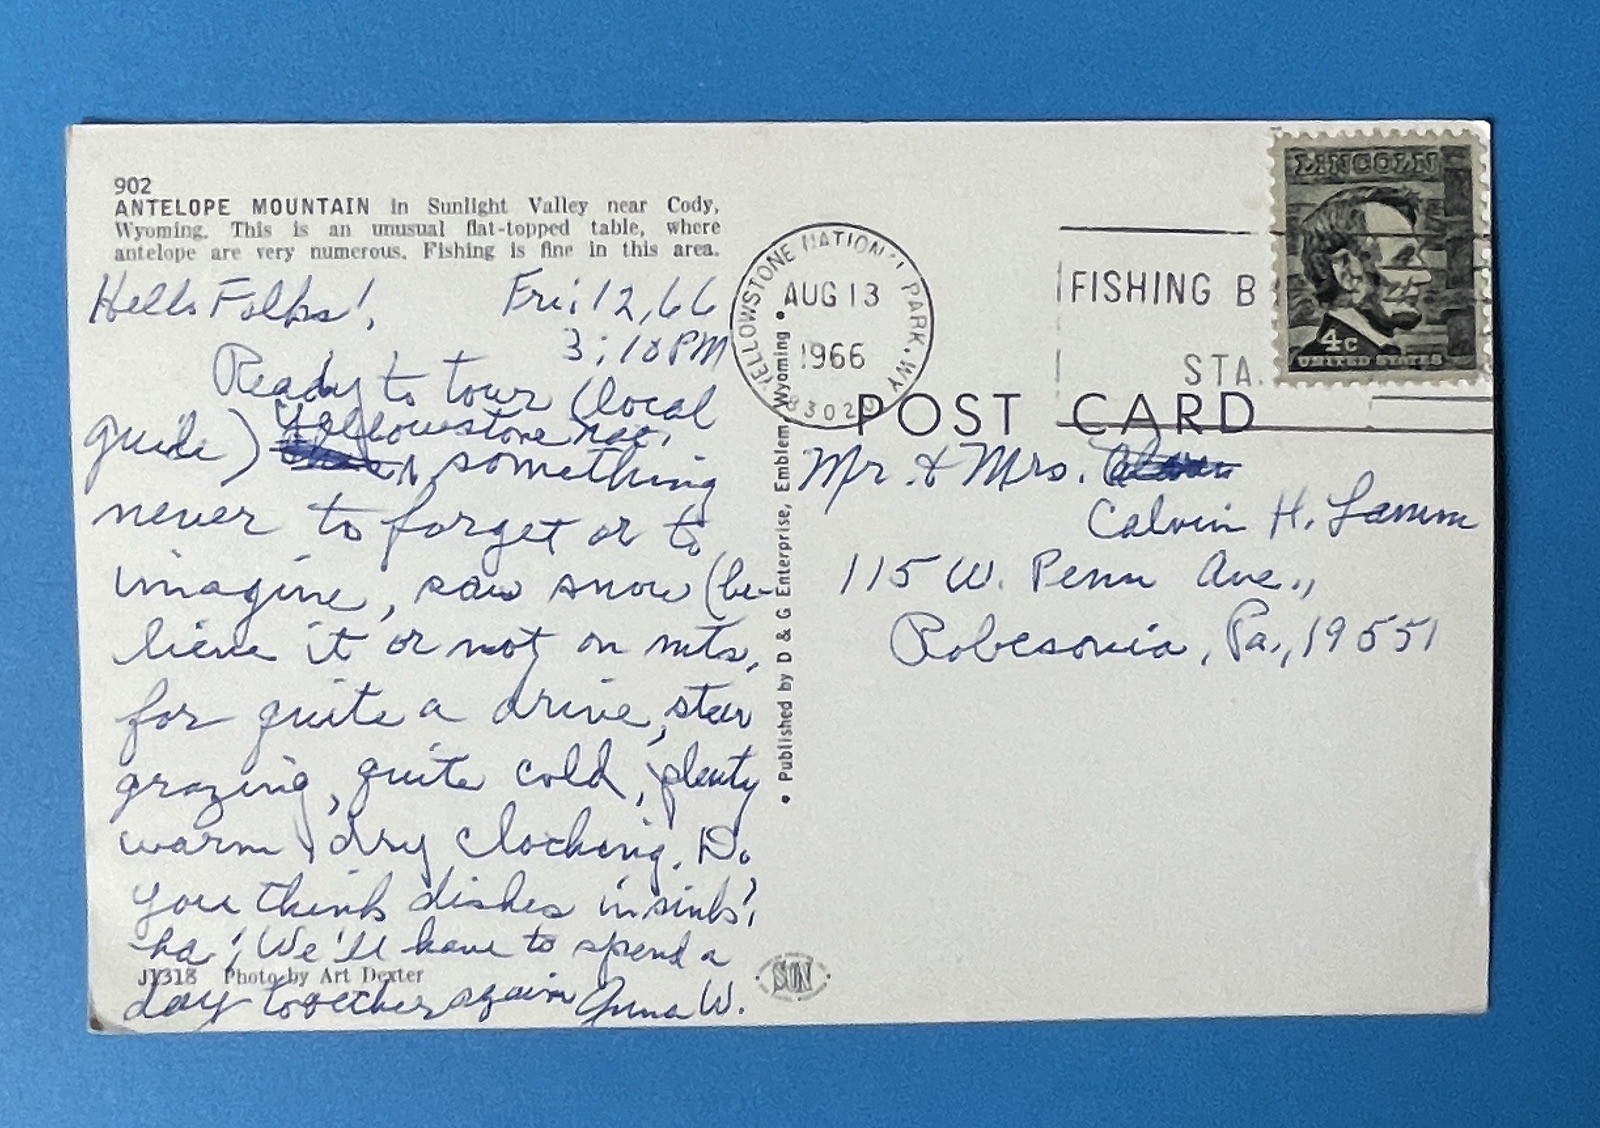 902
ANTELOPE MOUNTAIN in Sunlight Valley near Cody,
Wyoming. This is an unusual flat-topped table, where
antelope are very numerous. Fishing is fine in this area.
Hello Folks!, Fri; 12, 66
3;10 PM
Ready to tour (local
guide) Yellowstone nat. something
never to forget or to
imagine, saw snow (be-
lieve it or not on mts,
for quite a drive, steer
grazing, quite cold, plenty
warm dry clothing. Do
you think dishes in sink?,
ha! We'll have to spend a
J1318 Photo by Art Dexter
day together again Anna W.
• Published by D & G Enterprise, Emblem, Wyoming •
YELLOWSTONE NATION'L PARK, WY
AUG 13
1966
83020
FISHING B
STA.
LINCOLN
4c
UNITED STATES
POST CARD
Mr. & Mrs.
Calvin H. Lamm
115 W. Penn Ave.,
Robesonia, Pa., 19551
SUN